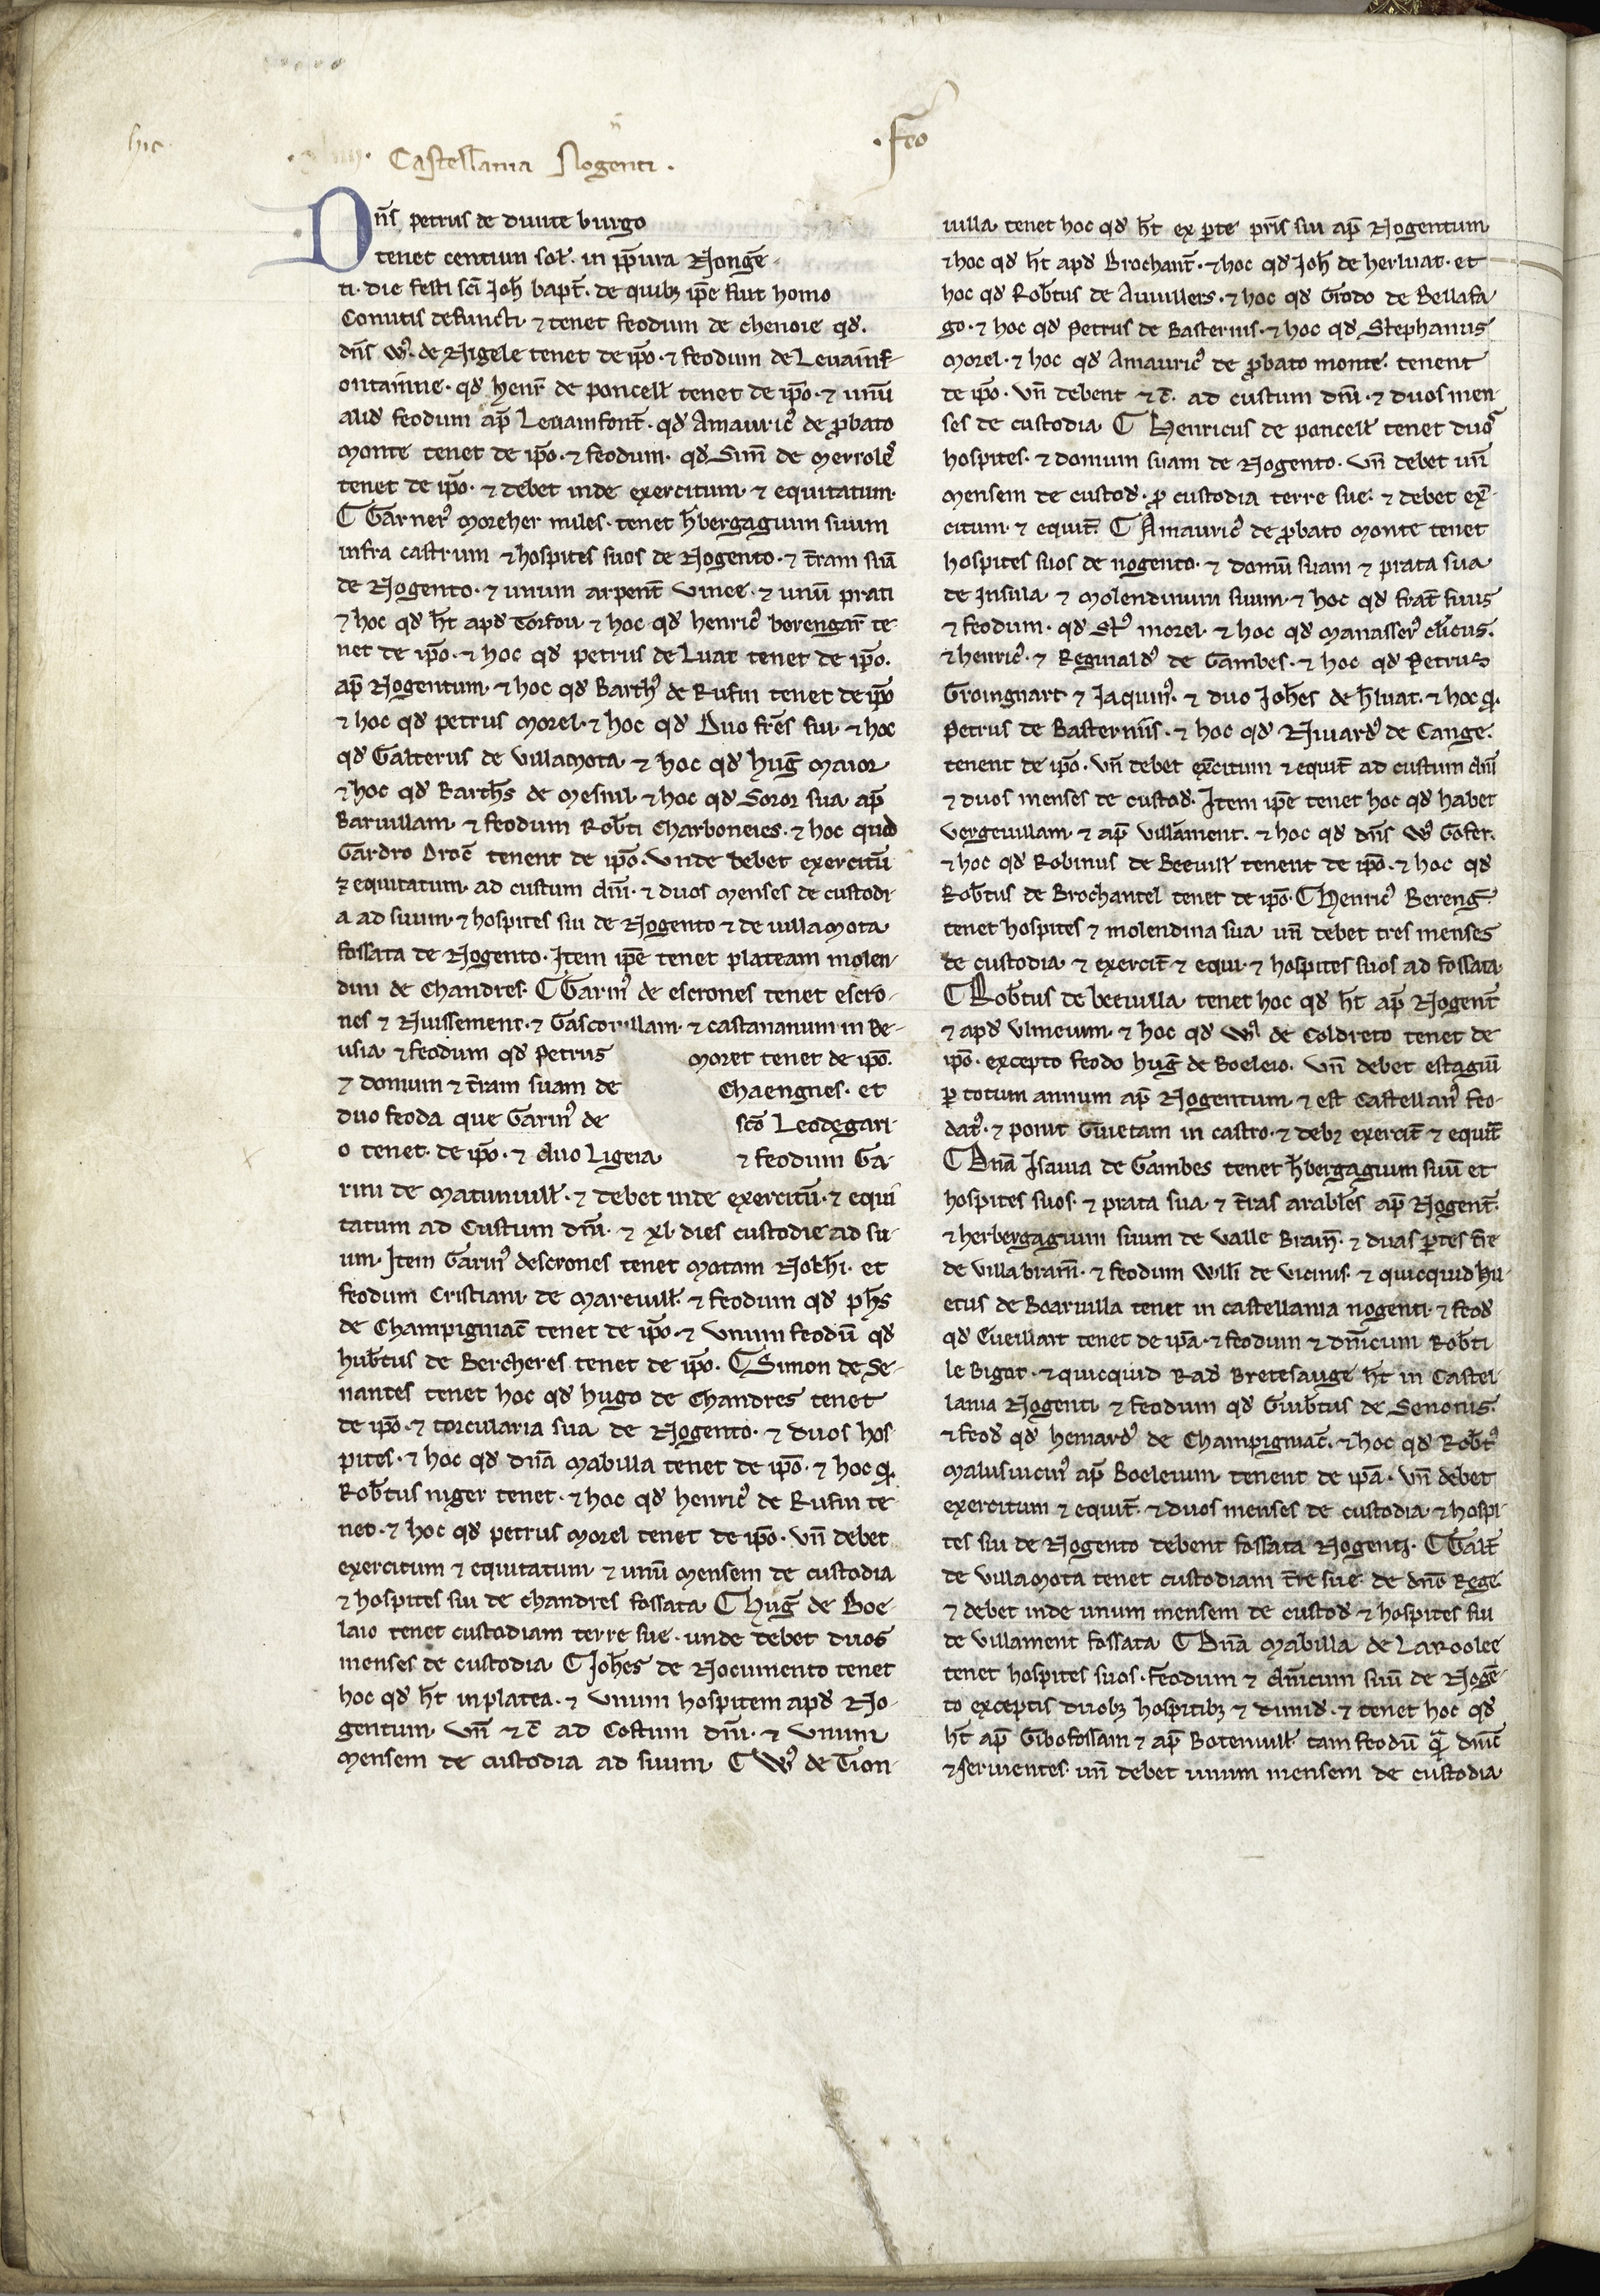 hic
Castellania Nogenti .
. feo
Dn̄s petrus de diuite burgo
tenet centum sol̄. in p̄p̄itura Nongē-
ti. die festi sc̄i Joh̄ bapt̄. de quib; ip̄e fuit homo
Comitis defuncti ⁊ tenet feodum de chenoie qd̄.
dn̄s W'. de Nigele tenet de ip̄o. ⁊ feodum de Leuainf-
ontainne. qd̄ henr̄ de poncell̄ tenet de ip̄o. ⁊ unū
aliud feodum ap̄ Leuainfont̄. qd̄ Amauric' de ꝓbato
monte tenet de ip̄o. ⁊ feodum. qd̄ Sim̄ de merrole'
tenet de ip̄o. ⁊ debet inde exercitum ⁊ equitatum.
⸿ Garner' moreher miles. tenet h̄bergagium suum
infra castrum ⁊ hospites suos de Nogento. ⁊ t̄ram suā
de Nogento. ⁊ unum arpent̄ vinee. ⁊ unū prati
⁊ hoc qd̄ h̄t apd̄ Torfou ⁊ hoc qd̄ henric' berengar̄ te-
net de ip̄o. ⁊ hoc qd̄ petrus de Luat tenet de ip̄o.
ap̄ Nogentum. ⁊ hoc qd̄ Barth' de Rufin tenet de ip̄o
⁊ hoc qd̄ petrus morel. ⁊ hoc qd̄ Duo fr̄es sui. ⁊ hoc
qd̄ Galterus de villamota ⁊ hoc qd̄ huḡ maior
⁊ hoc qd̄ Barth̄s de mesnil. ⁊ hoc qd̄ Soror sua ap̄
Baruillam ⁊ feodum Rob̄ti Charboneies. ⁊ hoc quod
Gardro Droc̄ tenent de ip̄o. vnde debet exercitū
⁊ equitatum. ad custum dn̄i. ⁊ duos menses de custodi-
a ad suum. ⁊ hospites sui de Nogento ⁊ de uillamota
fossata de Nogento. Item ip̄e tenet plateam molen-
dini de Chandres. ⸿ Garin' de escrones tenet escro-
nes ⁊ Nuissement. ⁊ Gascouillam. ⁊ castananum in Be-
usia ⁊ feodum qd̄ Petrus moret tenet de ip̄o.
⁊ domum ⁊ t̄ram suam de Chaengnes. et
duo feoda que Garin' de sc̄o Leodegari-
o tenet. de ip̄o. ⁊ duo Ligeia ⁊ feodum Ga-
rini de matunuill̄. ⁊ debet inde exercitū. ⁊ equi
tatum ad Custum dn̄i. ⁊ xl. dies custodie ad su-
um. Item Garin' descrones tenet motam Noth̄i. et
feodum Cristiani. de mareuill̄. ⁊ feodum qd̄ ph̄s
de Champigniac̄ tenet de ip̄o. ⁊ vnum feodū qd̄
hub̄tus de Bercheres tenet de ip̄o. ⸿ Simon de Se-
nantes tenet hoc qd̄ hugo de Chandres tenet
de ip̄o. ⁊ torcularia sua de Nogento. ⁊ duos hos-
pites. ⁊ hoc qd̄ dn̄a mabilla tenet de ip̄o. ⁊ hoc q̄.
Rob̄tus niger tenet. ⁊ hoc qd̄ henric' de Rufin te-
net. ⁊ hoc qd̄ petrus morel tenet de ip̄o. vn̄ debet
exercitum ⁊ equitatum ⁊ unū mensem de custodia
⁊ hospites sui de chandres fossata ⸿ huḡ de Boe-
laio tenet custodiam terre sue. unde debet duos
menses de custodia ⸿ Joh̄es de Nocumento tenet
hoc qd̄ h̄t in platea. ⁊ vnum hospitem apd̄ No-
gentum. vn̄ ⁊ c̄ ad Costum dn̄i. ⁊ vnum
mensem de custodia ad suum. ⸿ W' de Tion-
uilla tenet hoc qd̄ h̄t ex ꝑte pr̄is sui ap̄ Nogentum
⁊ hoc qd̄ h̄t apd̄ Brochant̄. ⁊ hoc qd̄ Joh̄ de herluat. et
hoc qd̄ Rob̄tus de Auuillers. ⁊ hoc qd̄ Grodo de Bellafa
go. ⁊ hoc qd̄ Petrus de Basterius. ⁊ hoc qd̄ Stephanus
morel. ⁊ hoc qd̄ Amauric' de ꝓbato monte. tenent
de ip̄o. vn̄ debent ⁊ c̄. ad custum dn̄i. ⁊ duos men-
ses de custodia ⸿ Henricus de poncell̄ tenet duos
hospites. ⁊ domum suam de Nogento. vn̄ debet un̄
mensem de custod̄. ꝓ custodia terre sue. ⁊ debet ex̄-
citum. ⁊ equit̄. ⸿ Amauric' de ꝓbato monte tenet
hospites suos de nogento. ⁊ domū suam ⁊ prata sua
de Insula ⁊ molendinum suum. ⁊ hoc qd̄ frat̄ suus
⁊ feodum. qd̄ St' morel. ⁊ hoc qd̄ manasser' cl̄icus.
⁊ henric'. ⁊ Reginald' de Gambes. ⁊ hoc qd̄ Petrus
Groingnart ⁊ Jaquin'. ⁊ duo Joh̄es de h̄luat. ⁊ hoc q̄.
Petrus de Basternīs. ⁊ hoc qd̄ Niuard' de Cange.
tenent de ip̄o. vn̄ debet ex̄citum ⁊ equit̄ ad custum dn̄i
⁊ duos menses de custod̄. Item ip̄e tenet hoc qd̄ habet
vergeuillam ⁊ ap̄ villāment. ⁊ hoc qd̄ dn̄s W' Gofer.
⁊ hoc qd̄ Robinus de Beeuill̄ tenent de ip̄o. ⁊ hoc qd̄
Rob̄tus de Brochantel tenet de ip̄o. ⸿ Henric' Berenḡ.
tenet hospites ⁊ molendina sua un̄ debet tres menses
de custodia ⁊ exercit̄ ⁊ equi. ⁊ hospites suos ad fossata
⸿ Rob̄tus de beeuilla tenet hoc qd̄ h̄t ap̄ Nogent̄
⁊ apd̄ vlmeium. ⁊ hoc qd̄ W' de Coldreto tenet de
ip̄o. excepto feodo huḡ de Boeleio. vn̄ debet estagiū
ꝑ totum annum ap̄ Nogentum. ⁊ est Castellan' feo-
dat'. ⁊ ponit Guietam in castro. ⁊ deb; exercit̄ ⁊ equit̄
⸿ Dn̄a Isauia de Gambes tenet h̄bergagium suū et
hospites suos. ⁊ prata sua ⁊ t̄ras arabl̄es ap̄ Nogent̄.
⁊ herbergagium suum de valle Brain̄. ⁊ duas ꝑtes t̄re
de villabrain̄. ⁊ feodum Will̄i de vicinis. ⁊ quicquid hu-
etus de Boaruilla tenet in castellania nogenti. ⁊ feod̄
qd̄ Eueillart tenet de ip̄a. ⁊ feodum ⁊ dn̄icum Rob̄ti
le Bigot. ⁊ quicquid Rad̄ Bretesauge h̄t in Castel-
lania Nogenti ⁊ feodum qd̄ Guib̄tus de Senonis.
⁊ feod̄ qd̄ hemard' de Champigniac̄. ⁊ hoc qd̄ Rob̄t'
malusuicin' ap̄ Boeleium tenent de ip̄a. vn̄ debet
exercitum ⁊ equit̄. ⁊ duos menses de custodia ⁊ hospi-
tes sui de Nogento debent fossata Nogenti. ⸿ Galt̄
de villamota tenet custodiam t̄re sue. de dn̄o Rege.
⁊ debet inde unum mensem de custod̄ ⁊ hospites sui
de villament fossata ⸿ Dn̄a mabilla de Laroolee
tenet hospites suos. feodum ⁊ dn̄icum suū de Nogē-
to exceptis duob; hospitib; ⁊ dimid̄. ⁊ tenet hoc qd̄
h̄t ap̄ Gibofossam ⁊ ap̄ Botenuill̄ tam feodū q̄ dn̄ic̄
⁊ seruientes. un̄ debet unum mensem de custodia